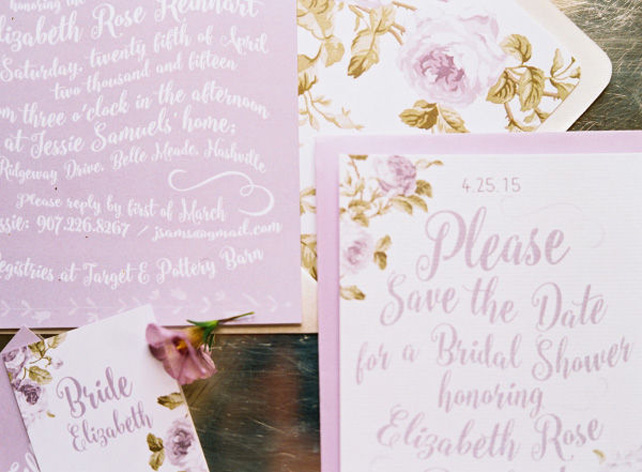 honoring the
Elizabeth Rose Reinhart
Saturday, twenty fifth of April
two thousand and fifteen
three o'clock in the afternoon
at Jessie Samuels' home:
Ridgeway Drive, Belle Meade, Nashville
Please reply by first of March
907.226.8267 / jsams@gmail.com
Registries at Target & Pottery Barn
Bride
Elizabeth
4.25.15
Please
Save the Date
for a Bridal Shower
honoring
Elizabeth Rose